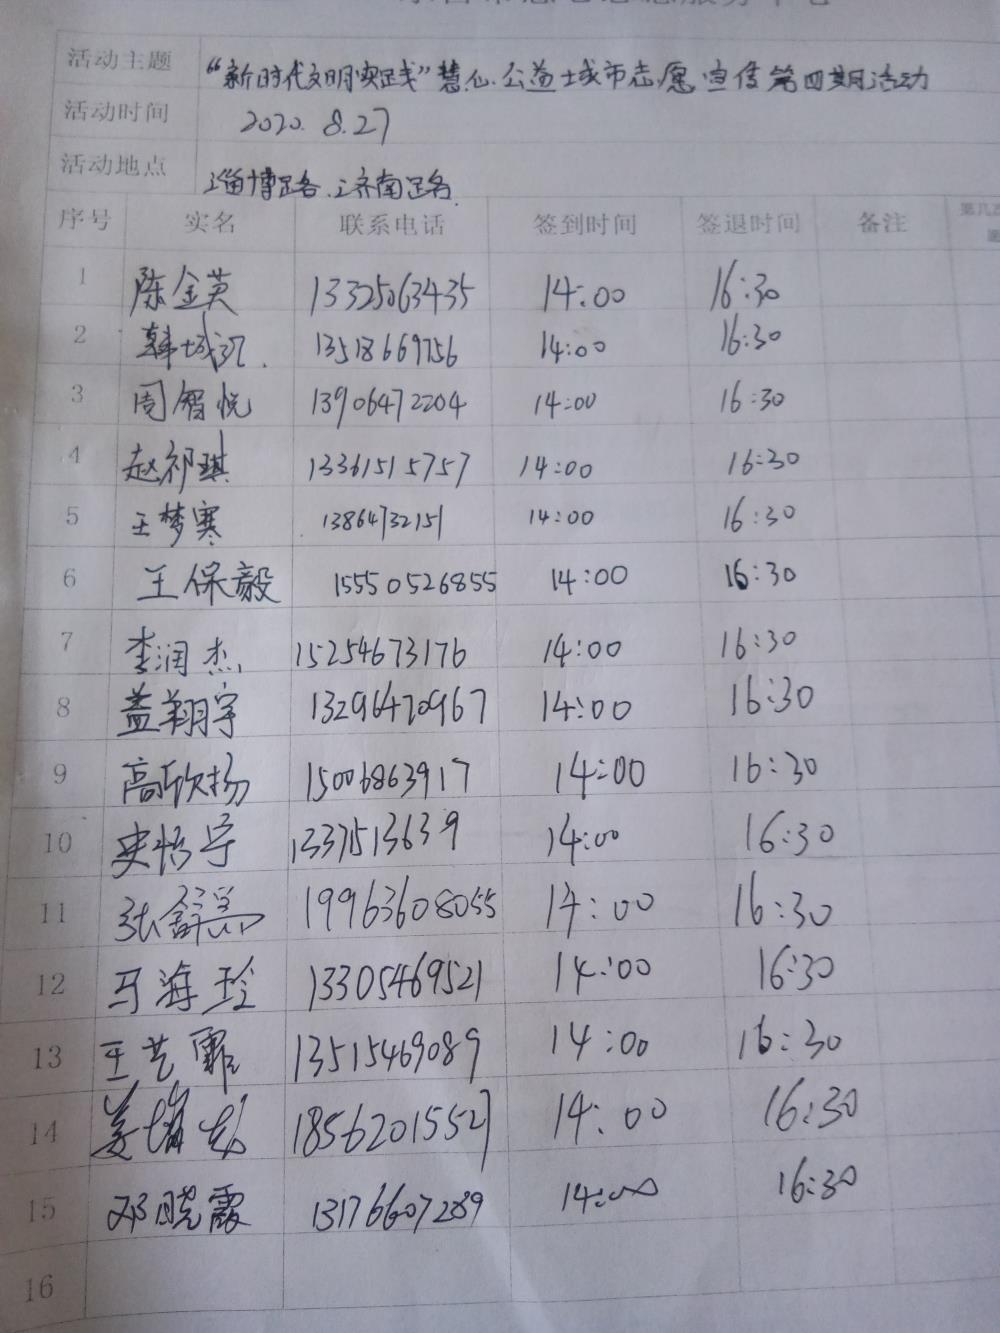 活动主题 “新时代文明实践”慧心.公益土城市志愿宣传第四期活动
活动时间 2020.8.27
活动地点 淄博路名、济南路名.
序号 实名 联系电话 签到时间 签退时间 备注
1 陈金英 13325063435 14:00 16:30
2 韩城 13518669756 14:00 16:30
3 周智悦 13906472204 14:00 16:30
4 赵祁琪 13361515757 14:00 16:30
5 王梦寒 13864732151 14:00 16:30
6 王保毅 15550526855 14:00 16:30
7 李润杰 15254673176 14:00 16:30
8 盖翔宇 13296470967 14:00 16:30
9 高欣扬 15006863917 14:00 16:30
10 史怡宁 1337513639 14:00 16:30
11 张 19963608055 14:00 16:30
12 马海玲 13305469521 14:00 16:30
13 王艺霏 13515469089 14:00 16:30
14 姜 18562015527 14:00 16:30
15 邓晓霞 13176607289 14:00 16:30
16